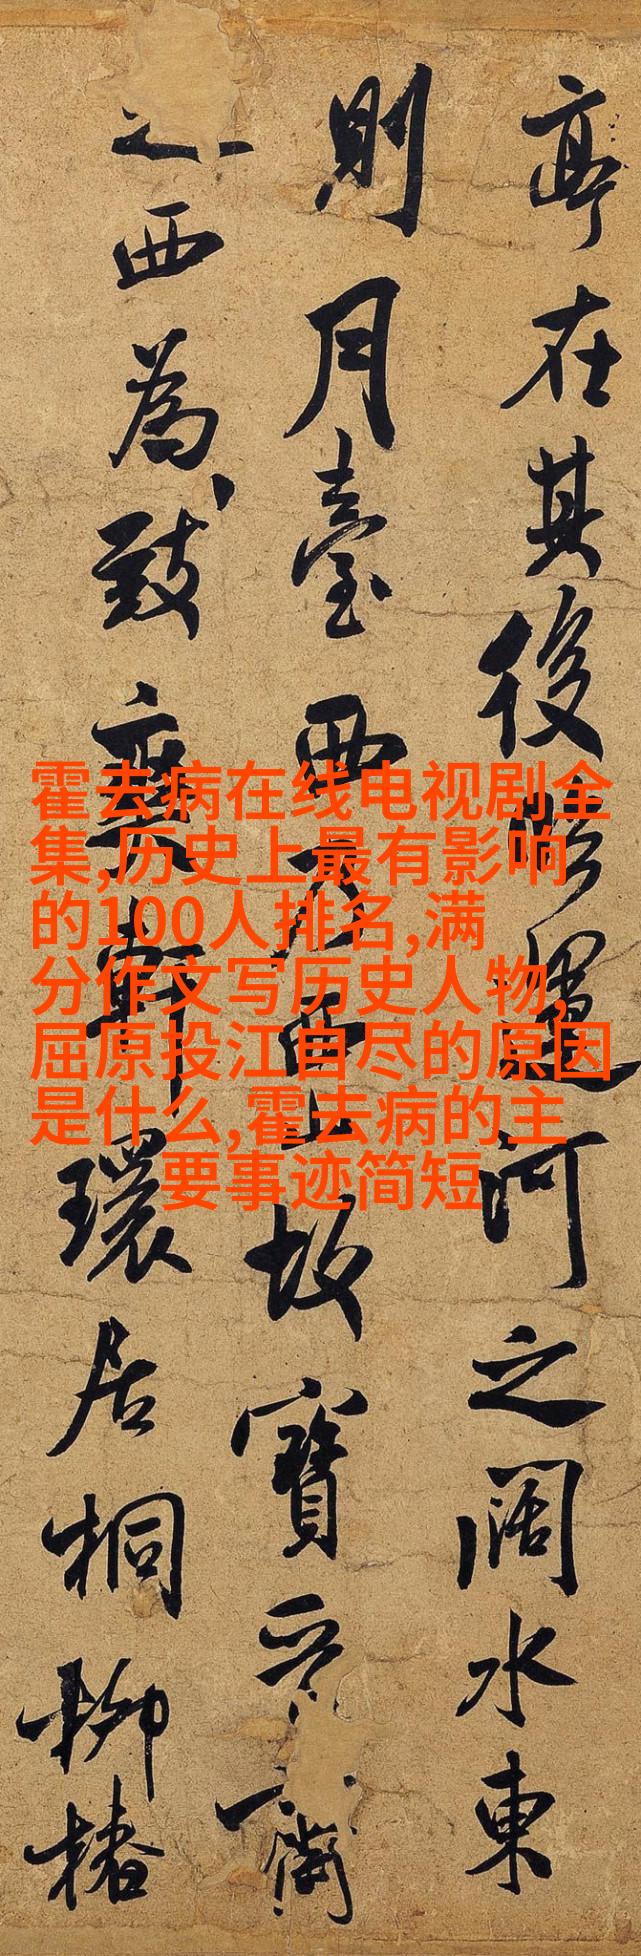 亭在其後臨運河之闊水東
則月臺西乃西山故寶晉齋
之西為致爽軒環居桐柳椿
霍去病在线电视剧全
集,历史上最有影响
的100人排名,满
分作文写历史人物,
屈原投江自尽的原因
是什么,霍去病的主
要事迹简短